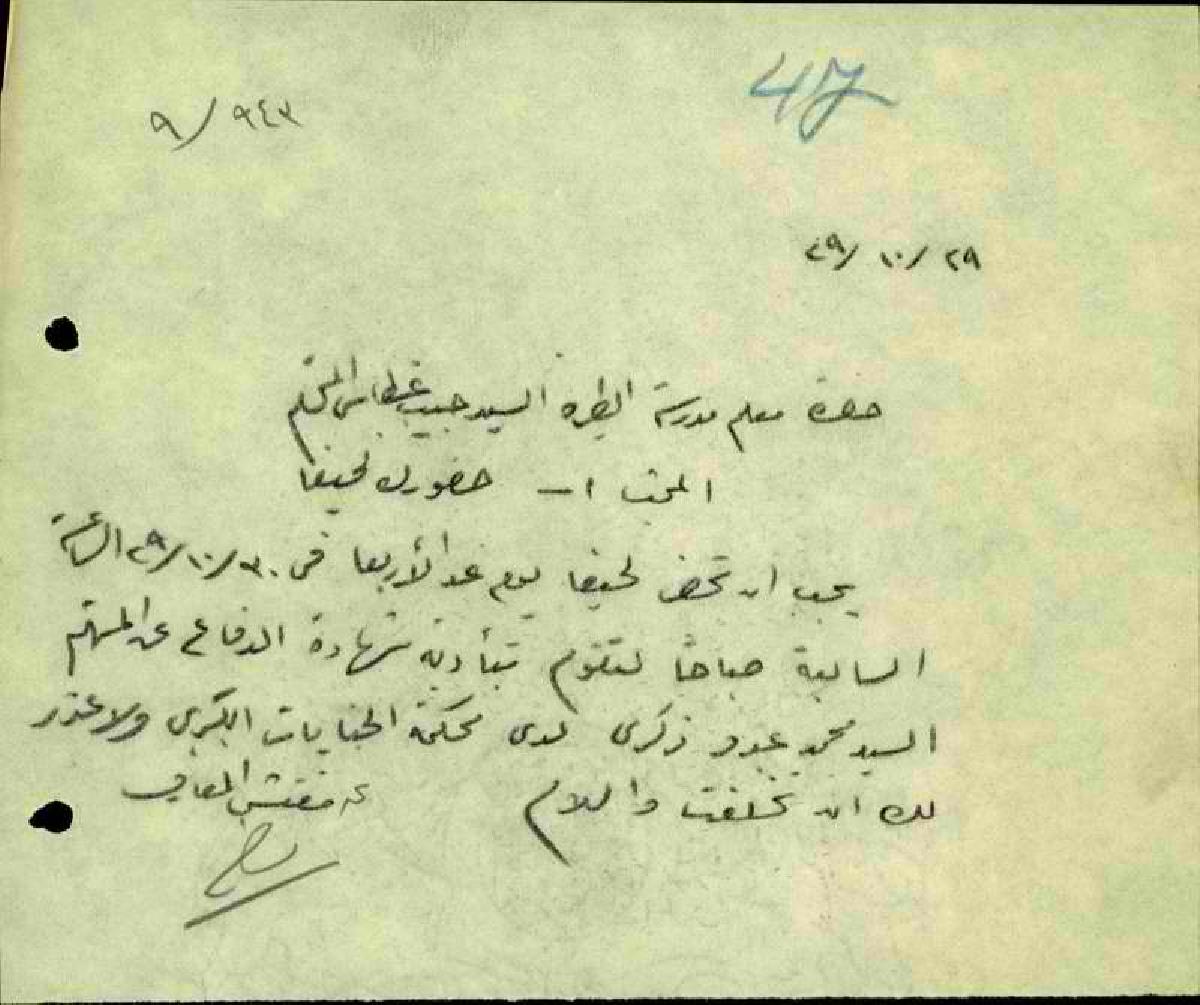 47
٩/٩٤٣
٢٩/١٠/٢٩
حضرة معلم مدرسة الطيره السيد حبيب غطاس المحترم
المبحث :- حضورك لحيفا
يجب ان تحضر لحيفا يوم غد الأربعا في ٣٠/١٠/٢٩ الساعة
السابعة صباحاً لتقوم بتأدية شهادة الدفاع عن المتهم
السيد محمد عبدو زكرى لدى محكمة الجنايات الكبرى ولا عذر
لك ان تخلفت والسلام
ع مفتش المعارف